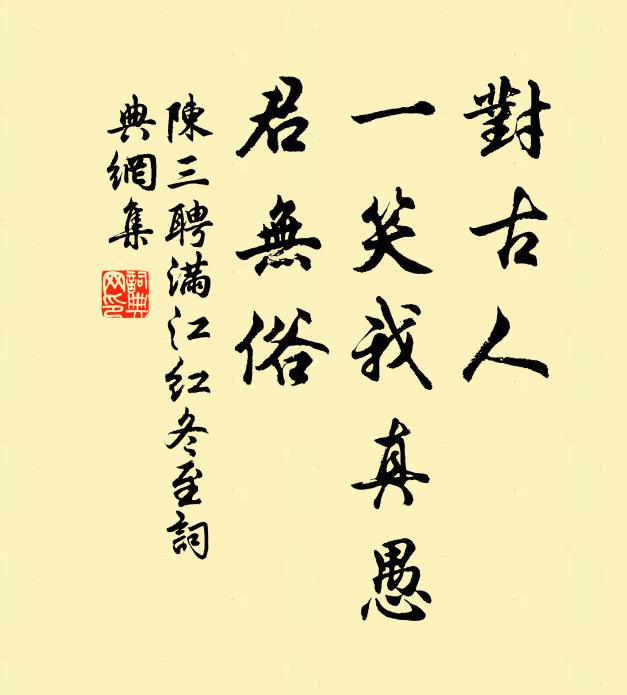 對古人
一笑我真愚
君無俗
陳三聘滿江紅冬至詞
典網集
詞典
网印